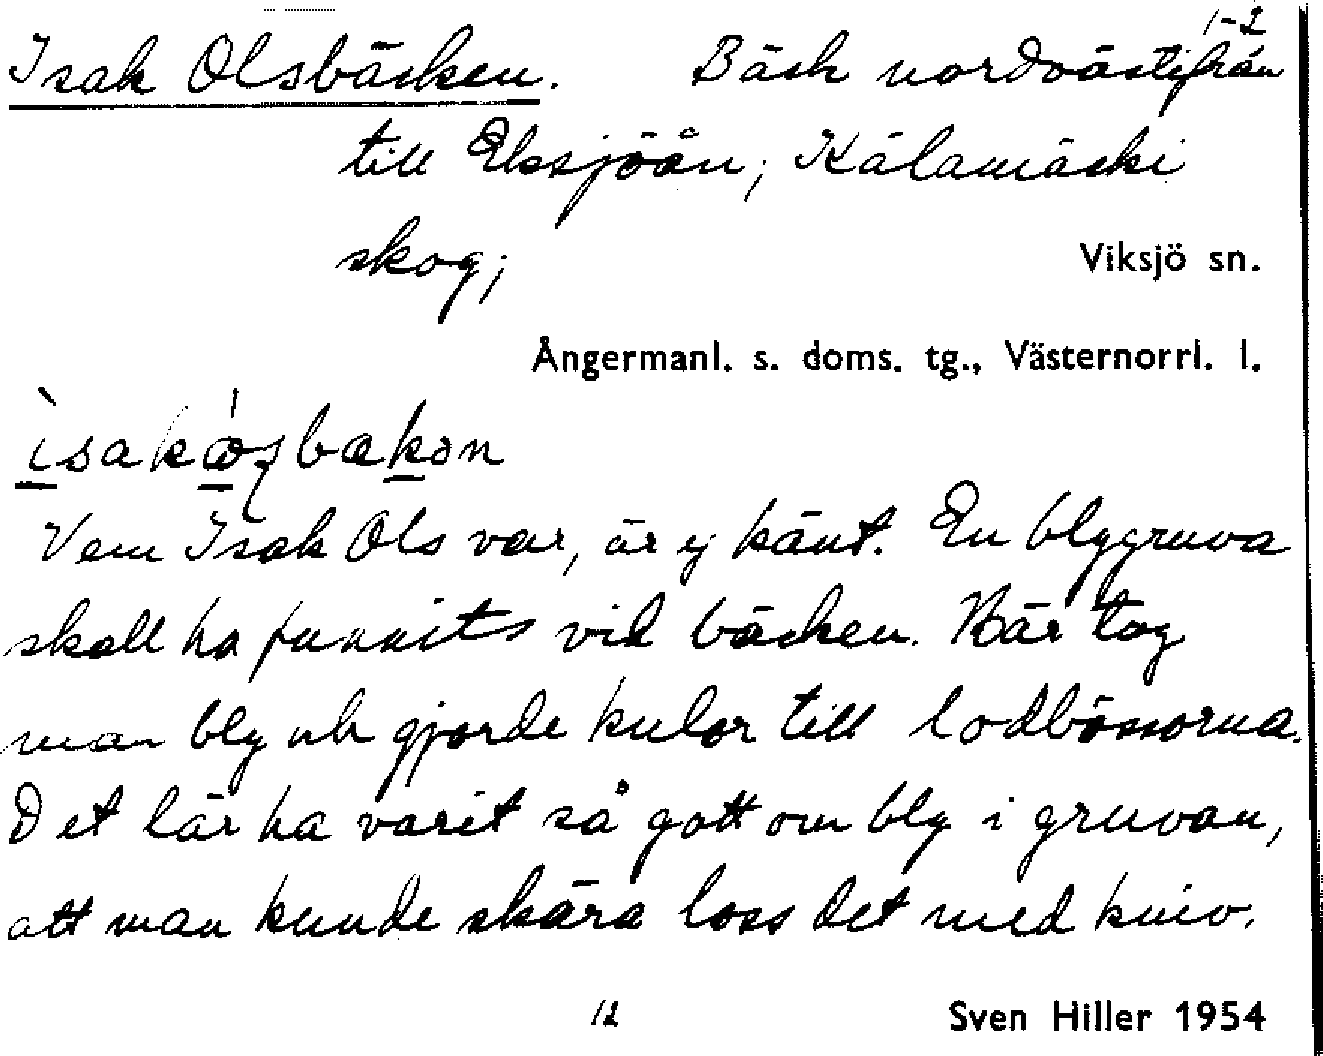 1-2
Isak Olsbäcken. Bäck nordvästifrån
till Eksjöån; Kälamäcki
skog; Viksjö sn.
Ångermanl. s. doms. tg., Västernorrl. l.
Vem Isak Ols var, är ej känt. En blygruva
skall ha funnits vid bäcken. Här tog
man bly och gjorde kulor till lodbössorna.
Det lär ha varit så gott om bly i gruvan,
att man kunde skära loss det med kniv.
12 Sven Hiller 1954